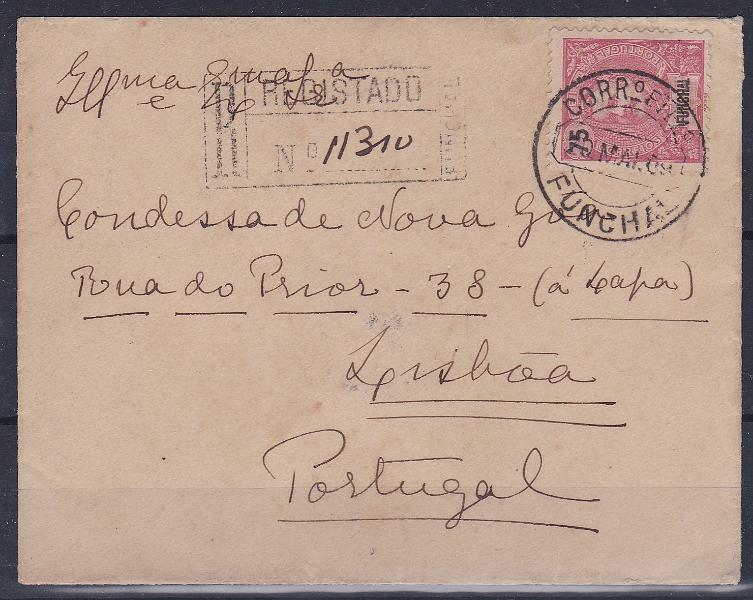 Illma e Exma Snra
R REGISTADO
Nº 11310
FUNCHAL
PORTUGAL
75
FUNCHAL
CORRº E TEL
MAI. 09
FUNCHAL
Condessa de Nova Gôa
Rua do Prior - 38 - (á Lapa)
Lisbôa
Portugal